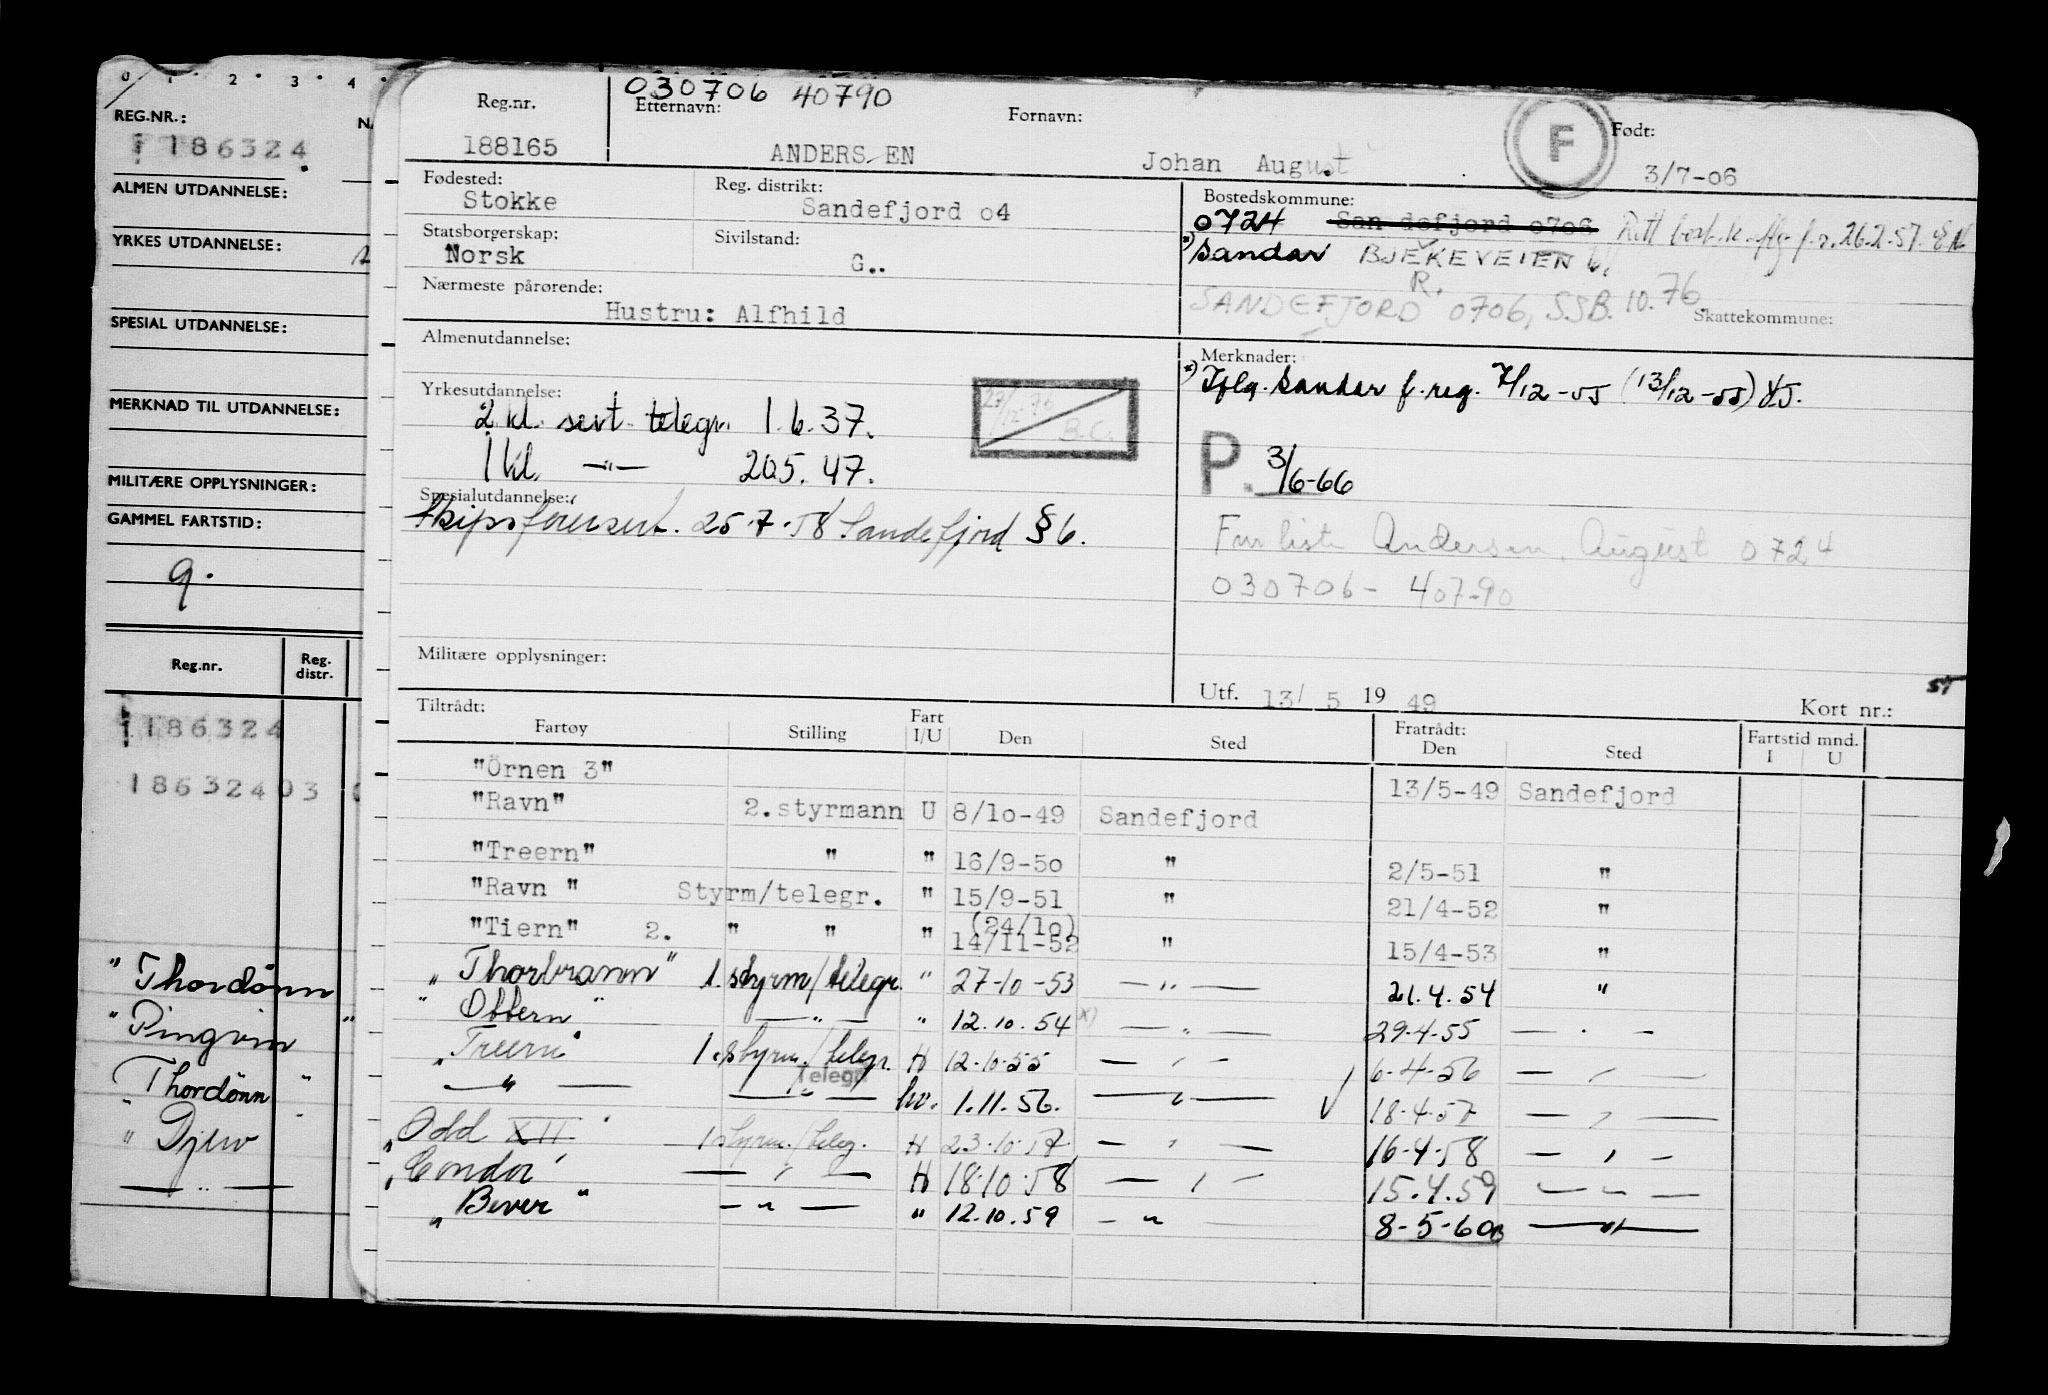 0 1 2 3 4
REG.NR.:
186324
ALMEN UTDANNELSE:
YRKES UTDANNELSE:
SPESIAL UTDANNELSE:
MERKNAD TIL UTDANNELSE:
MILITÆRE OPPLYSNINGER:
GAMMEL FARTSTID:
9.
Reg.nr. Reg. distr.
186324
18632403
"Thordönn
"Pingvin"
Thordönn"
"Djerv"
— " —
030706 40790
Reg.nr. Etternavn: Fornavn: Født:
188165 ANDERSEN Johan August F 3/7-06
Fødested: Reg. distrikt: Bostedskommune:
Stokke Sandefjord o4 0724 San defjord 0706 f.r. 26.2.57. EN
Statsborgerskap: Sivilstand:
Norsk G.. *) Sandar BJEKEVEIEN
R.
Nærmeste pårørende: SANDEFJORD 0706, SSB. 10.76
Hustru: Alfhild Skattekommune:
Almenutdannelse: Merknader:
*) Iflg. Sandar f.reg. 7/12-55 (13/12-55)
Yrkesutdannelse:
2 kl. sert. telegr. 1.6.37.
B.C.
1 kl. —"— 20.5.47.
P. 3/6-66
Spesialutdannelse:
Skipsförersert. 25.7.58 Sandefjord §6.
Andersen, August 0724
030706-40790
Militære opplysninger:
Utf. 13/ 5 19 49 Kort nr.:
Tiltrådt: Fratrådt: Fartstid mnd.
Fartøy Stilling Fart I/U Den Sted Den Sted I U
"Örnen 3" 13/5-49 Sandefjord
"Ravn" 2.styrmann U 8/1o-49 Sandefjord
"Treern" " " 16/9-5o " 2/5-51 "
"Ravn " Styrm/telegr. " 15/9-51 " 21/4-52 "
"Tiern" 2. " " " (24/1o) 14/11-52 " 15/4-53 "
"Thorbrann" 1. styrm/telegr. " 27-10-53 —"— 21.4.54 "
"Ottern" —"— " 12.10.54 x) —"— 29-4-55 — " —
"Treern" 1. styrm./telegr. H 12-10-55 — " — 6-4-56 — " —
—"— Telegr —"— hv. 1.11.56. —"— 18-4-57 — " —
"Odd XII" 1 styrm./teleg. H 23-10-57 — " — 16-4-58 — " —
"Condor" — " — H 18-10-58 — " — 15.4.59 — " —
"Bever" — " — " 12.10.59 — " — 8-5-60 —"—